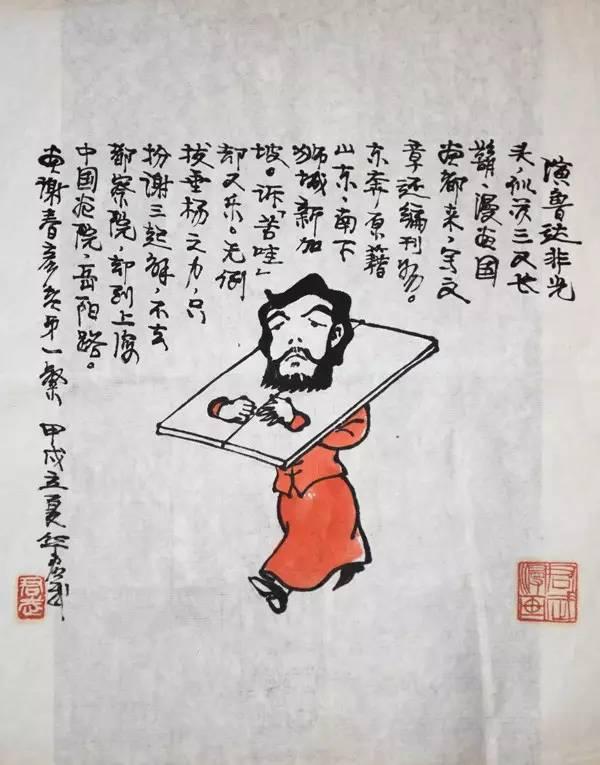 演鲁达非光
头，三尺长
髯，漫画国
画都来，写文
章还编刊物。
东奔原籍
山东，南下
狮城新加
坡。诉「苦哇」
却又乐。无倒
拔垂杨之力，只
扮谢三起解，不去
都察院，却到上海
中国画院，岳阳路。
画谢春彦第一 甲戌立夏
君武